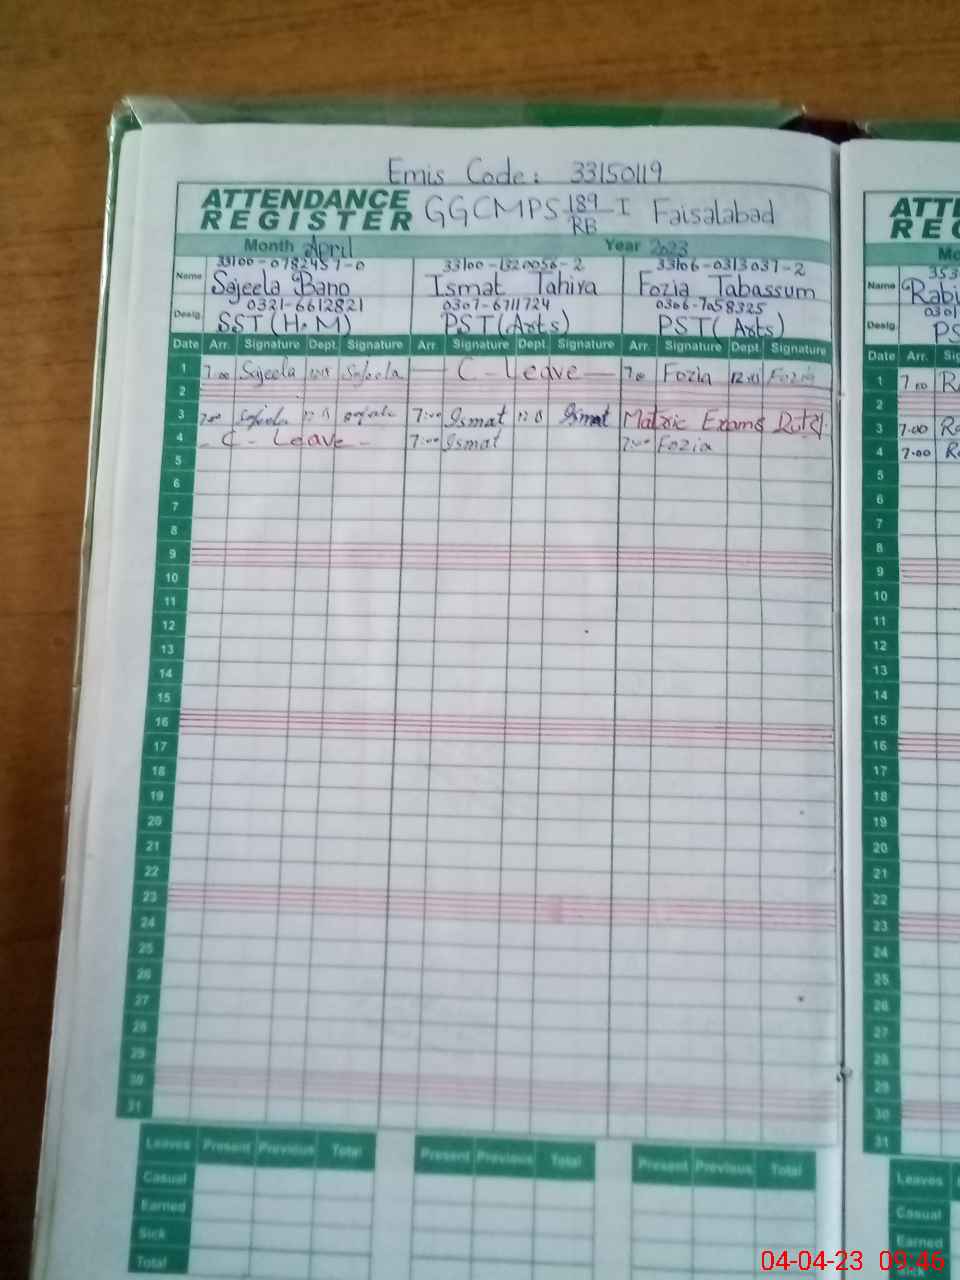 Emis Code: 33150119
ATTENDANCE REGISTER GGCMPS 189/RB I Faisalabad
Month April Year 2023
33100-0782457-0 33100-1320056-2 33106-0313037-2
Name Sajeela Bano Ismat Tahira Fozia Tabassum
0321-6612821 0307-6711724 0306-7058325
Desig. SST (H.M) PST (Arts) PST (Arts)
Date Arr. Signature Dept. Signature Arr. Signature Dept. Signature Arr. Signature Dept. Signature
1 7.00 Sajeela Sajeela C - Leave 7.00 Fozia Fozia
2
3 7.00 7:00 Ismat Ismat Matric Exams
4 - C - Leave - 7:00 Ismat 7:00 Fozia
5
6
7
8
9
10
11
12
13
14
15
16
17
18
19
20
21
22
23
24
25
26
27
28
29
30
31
Leaves Present Previous Total Present Previous Total Present Previous Total
Casual
Earned
Sick
Total
Name
Desig.
Date Arr.
1 7.00
2
3 7.00
4 7.00
5
6
7
8
9
10
11
12
13
14
15
16
17
18
19
20
21
22
23
24
25
26
27
28
29
30
31
Leaves
Casual
Earned
Sick
04-04-23 09:46